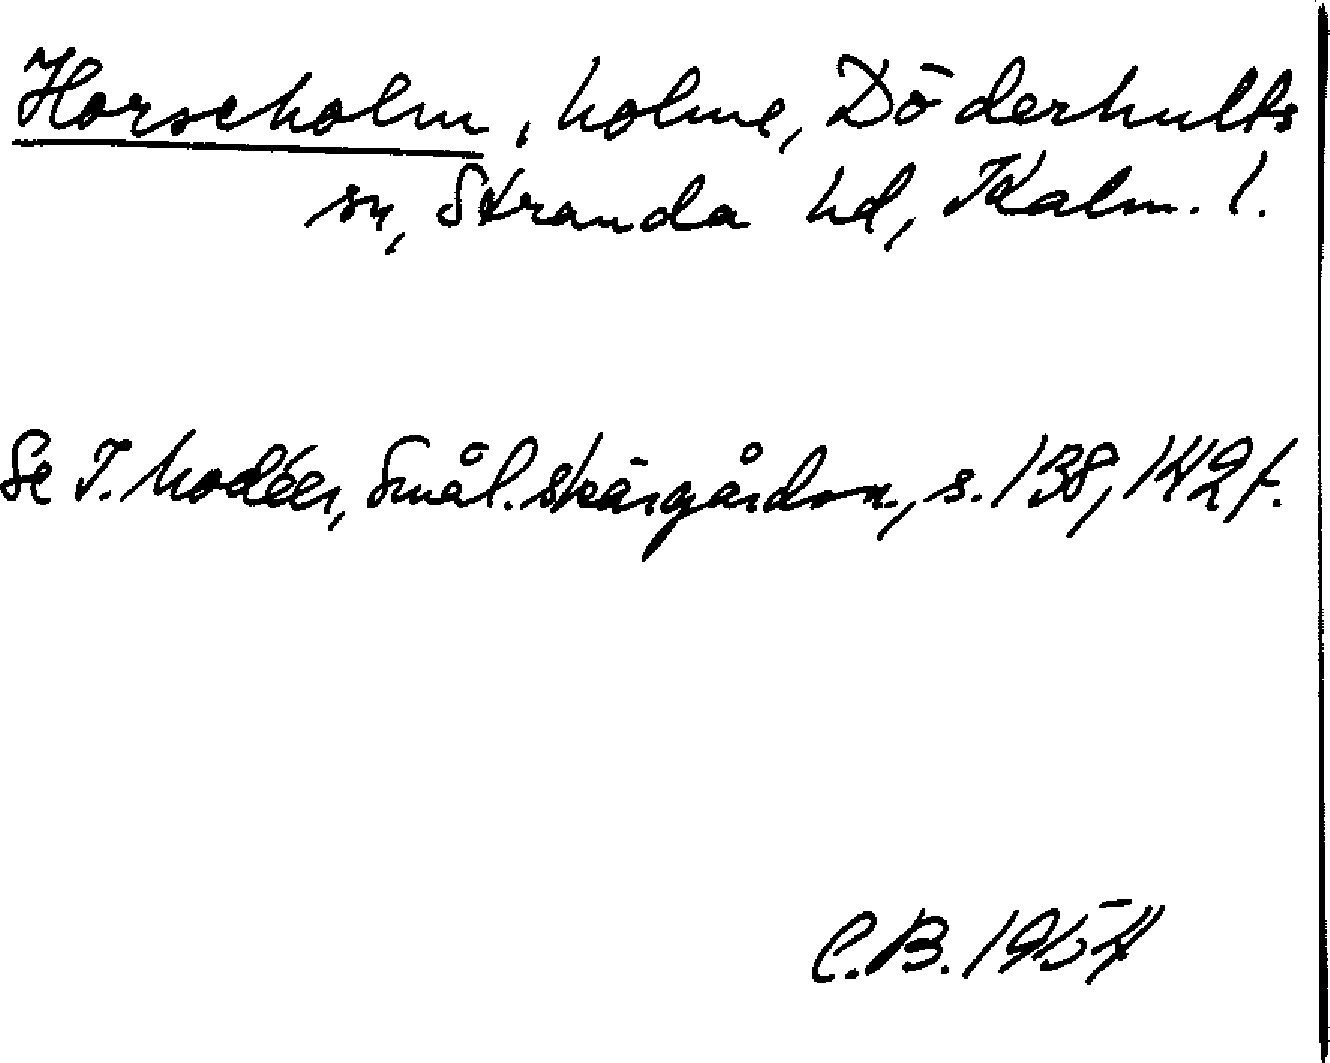 Horseholm, holme, Döderhults
sn, Stranda hd, Kalm. l.
Se I. Modéer, Smål. skärgårdsn, s. 138, 142 f.
C.B. 1954